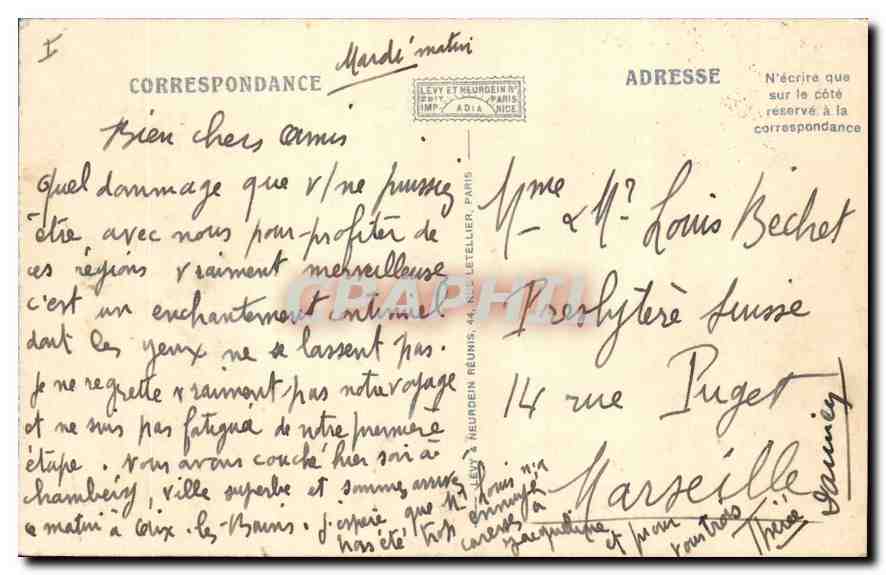 I
Mardi matin
CORRESPONDANCE
LEVY ET NEURDEIN Rs
EDIT. PARIS
IMP. ADIA NICE
ADRESSE
N'écrire que
sur le côté
reservé à la
correspondance
Bien chers amis
Quel dommage que v/ne puissiez
être avec nous pour profiter de
ces régions vraiment merveilleuse
c'est un enchantement continuel
dont les yeux ne se lassent pas.
Je ne regrette vraiment pas notre voyage
et ne suis pas fatigué de notre première
étape. Nous avons couché hier soir à
Chambéry, ville superbe et sommes arrivés
ce matin à Aix-les-Bains. J'espère que Mr Louis n'a
pas été trop ennuyé
caresses à
Jacqueline
et pour
vous trois
LÉVY & NEURDEIN RÉUNIS, 44, RUE LETELLIER, PARIS
Mme & Mr Louis Béchet
Presbytère Suisse
14 rue Puget
Marseille
CPAPHIL